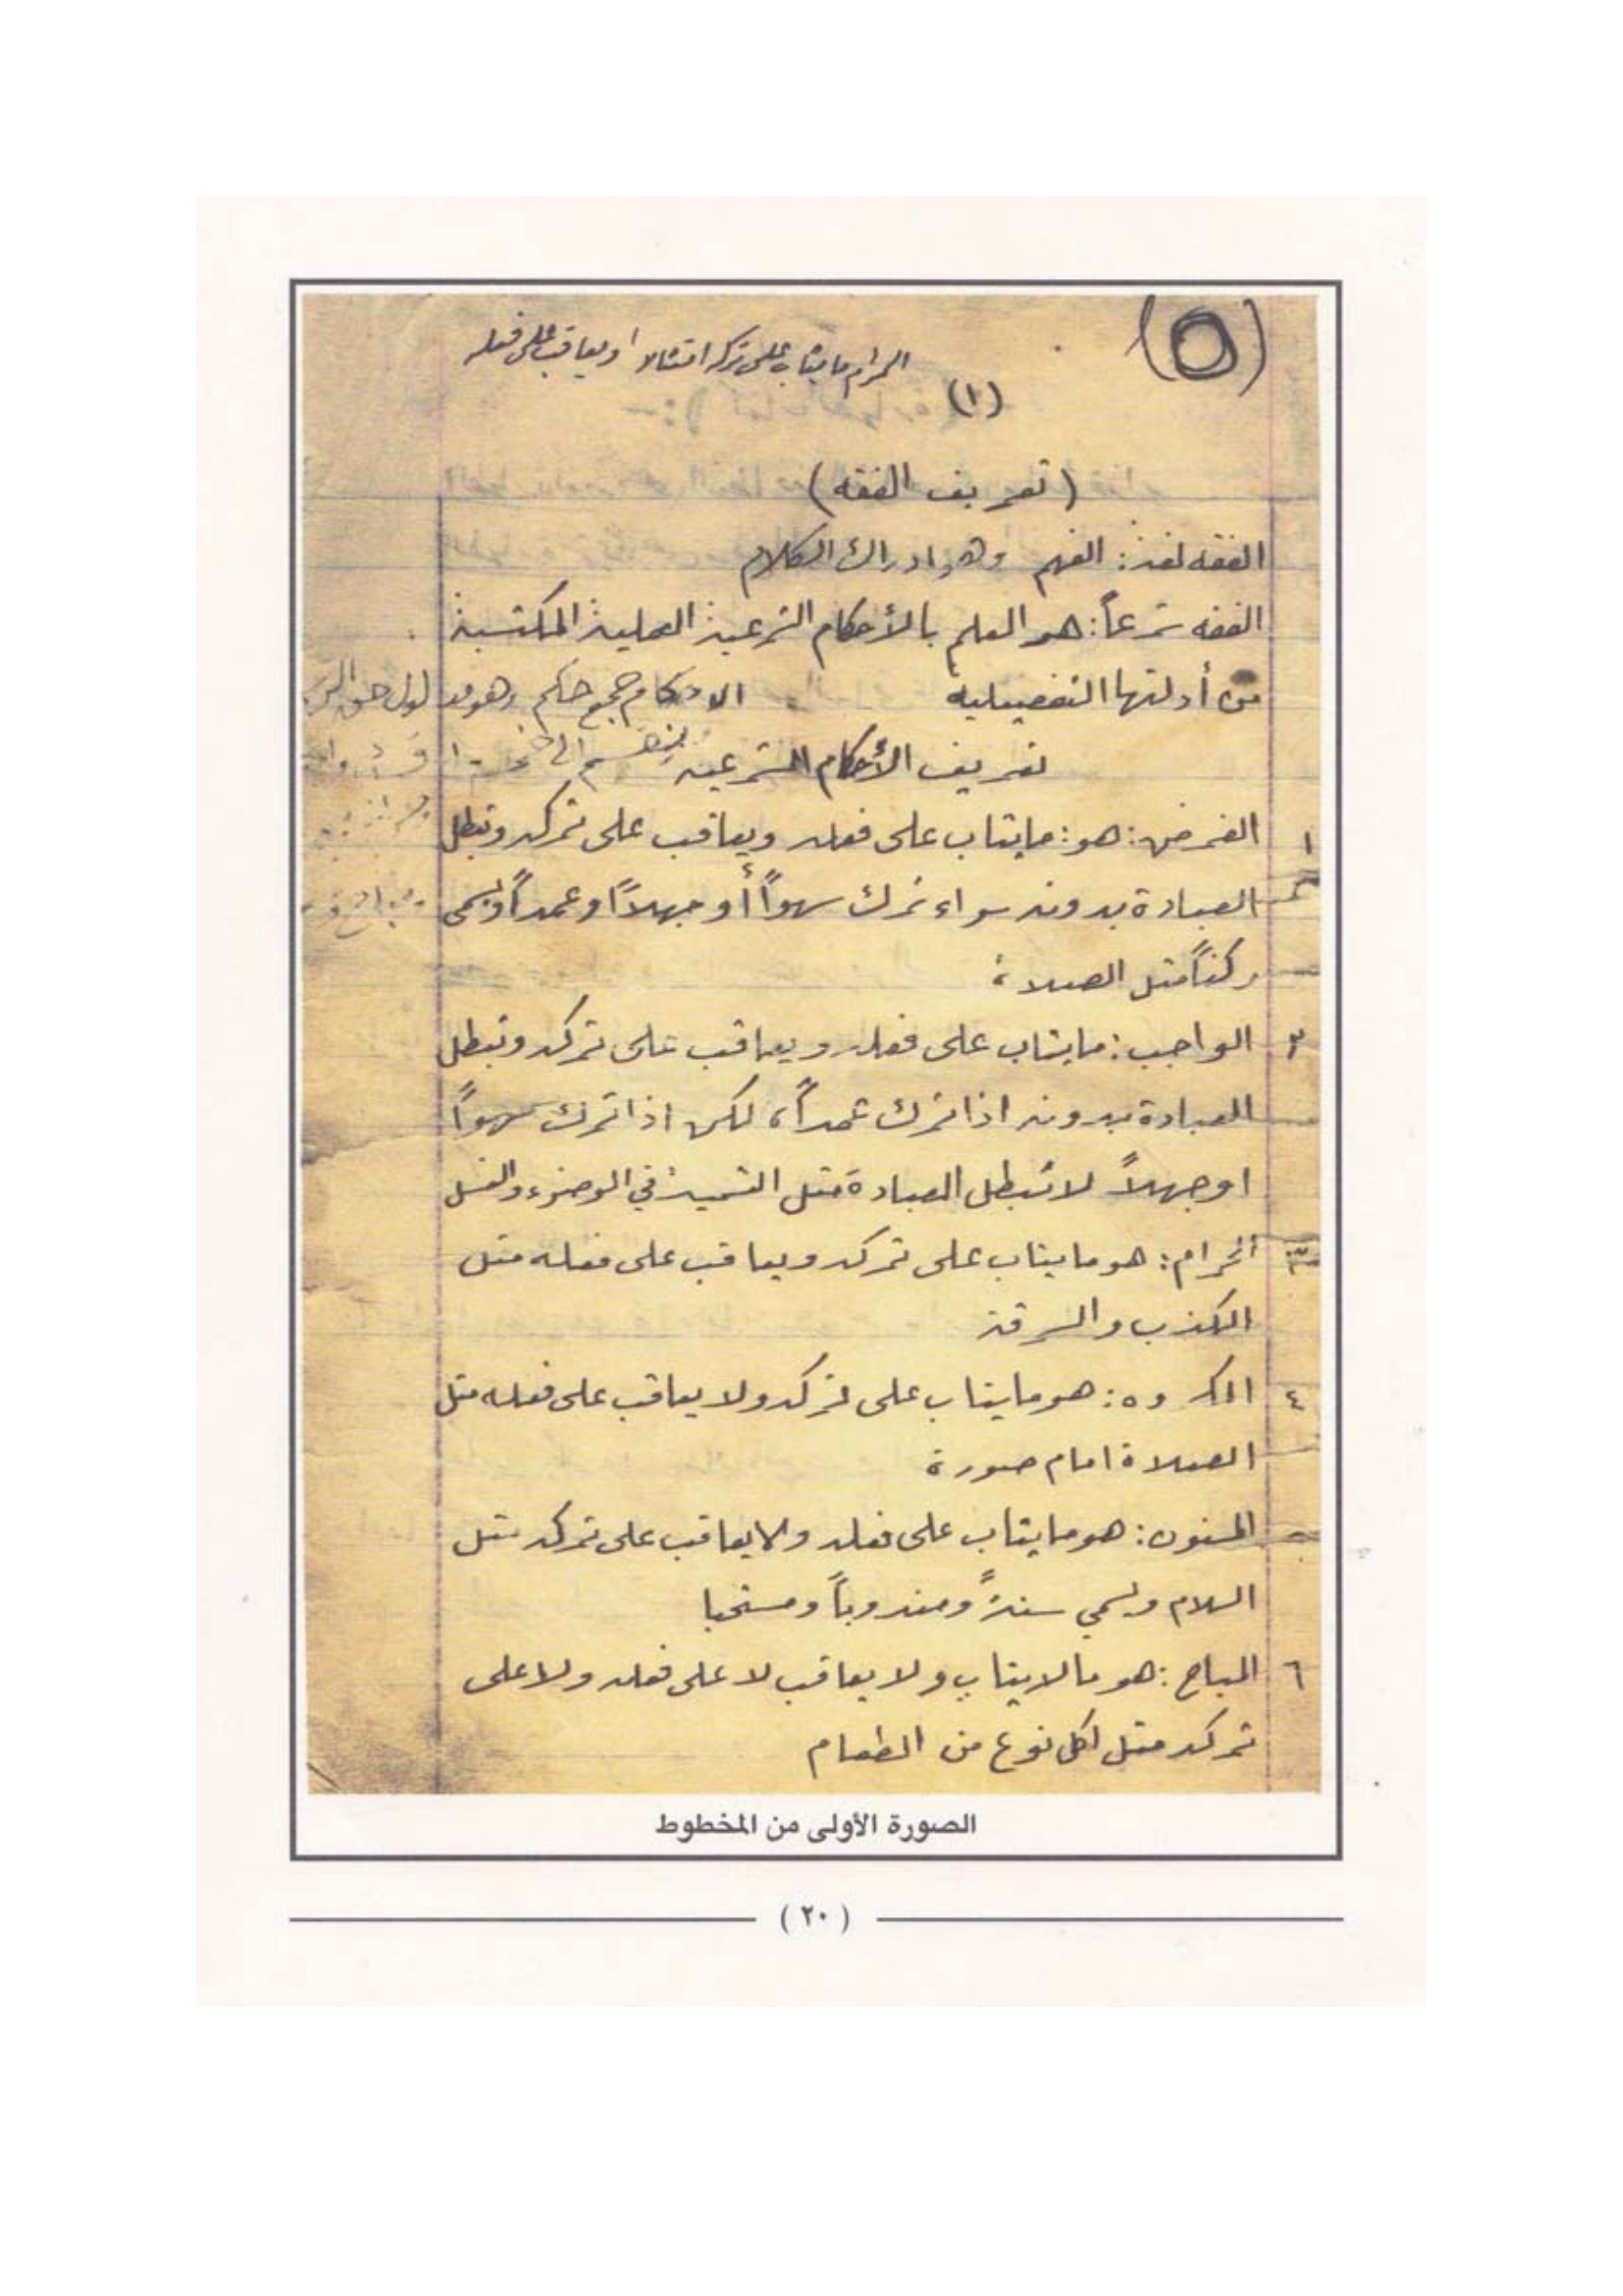 (٥)
الحرام ما يثاب على تركه امتثالا ويعاقب على فعله
(١)
(تعريف الفقه)
الفقه لغة: الفهم وهو ادراك الكلام
الفقه شرعاً: هو العلم بالأحكام الشرعية العملية المكتسبة
من أدلتها التفصيلية الاحكام جمع حكم وهو
تعريف الأحكام الشرعية
١ الفرض: هو: ما يثاب على فعله ويعاقب على تركه وتبطل
العبادة بدونه سواء ترك سهواً أو جهلاً وعمداً ويسمى
ركناً مثل الصلاة
٢ الواجب: ما يثاب على فعله ويعاقب على تركه وتبطل
العبادة بدونه اذا ترك عمداً، لكن اذا ترك سهواً
او جهلاً لا تبطل العبادة مثل التسمية في الوضوء والغسل
٣ الحرام: هو ما يثاب على تركه ويعاقب على فعله مثل
الكذب والسرقة
٤ المكروه: هو ما يثاب على تركه ولا يعاقب على فعله مثل
الصلاة امام صورة
المسنون: هو ما يثاب على فعله ولا يعاقب على تركه مثل
السلام ويسمي سنةً ومندوباً ومستحبا
٦ المباح: هو ما لا يثاب ولا يعاقب لا على فعله ولا على
تركه مثل اكل نوع من الطعام
الصورة الأولى من المخطوط
(٢٠)